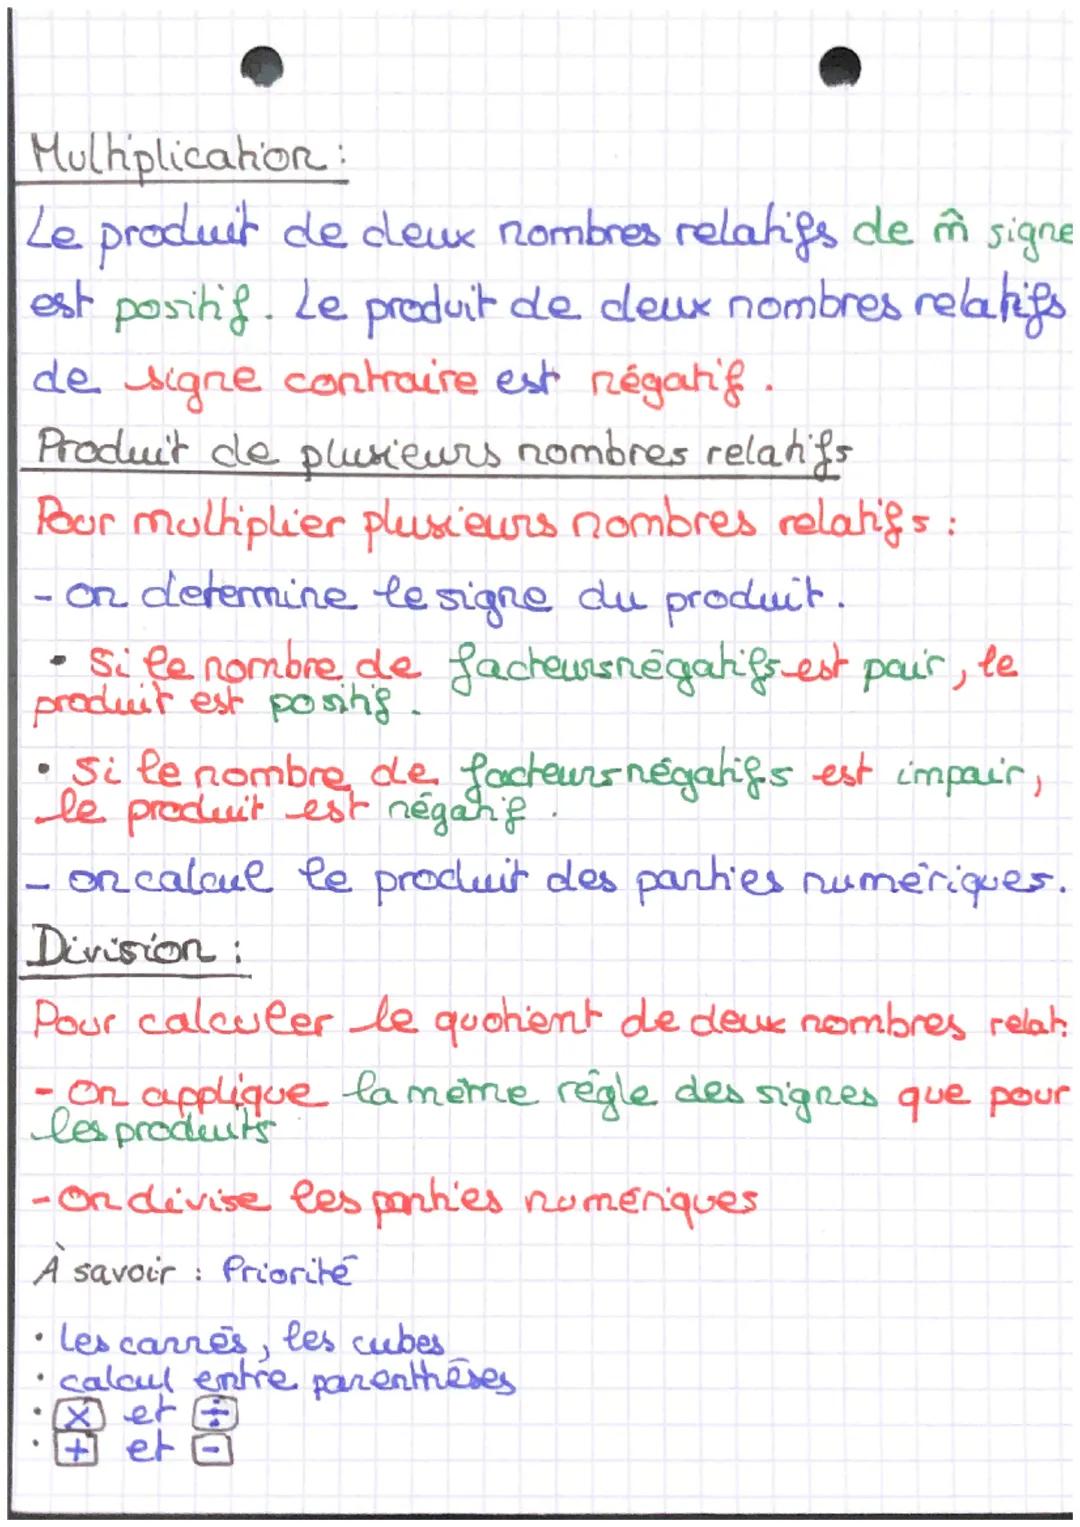 Multiplication :
Le produit de deux nombres relatifs de m̂ signe
est positif. Le produit de deux nombres relatifs
de signe contraire est négatif.
Produit de plusieurs nombres relatifs
Pour multiplier plusieurs nombres relatifs :
- on détermine le signe du produit.
• Si le nombre de facteurs négatifs est pair, le
produit est positif.
• Si le nombre de facteurs négatifs est impair,
le produit est négatif.
- on calcul le produit des parties numériques.
Division :
Pour calculer le quotient de deux nombres relat.
- On applique la même régle des signes que pour
les produits
- On divise les parties numériques
À savoir : Priorité
• les carrés, les cubes
• calcul entre parenthèses
• × et ÷
• + et -